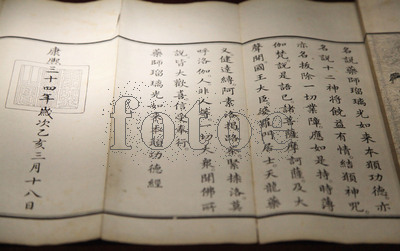 名說藥師瑠璃光如來本願功德亦
名說十二神將饒益有情結願神咒
亦名拔除一切業障應如是持時薄
伽梵說是語已諸菩薩摩訶薩及大
聲聞國王大臣婆羅門居士天龍藥
叉健達縛阿素洛揭路荼緊捺洛莫
呼洛伽人非人等一切大眾聞佛所
說皆大歡喜信受奉行
藥師瑠璃光如來本願功德經
康熙三十四年歲次乙亥三月十八日
fotoe